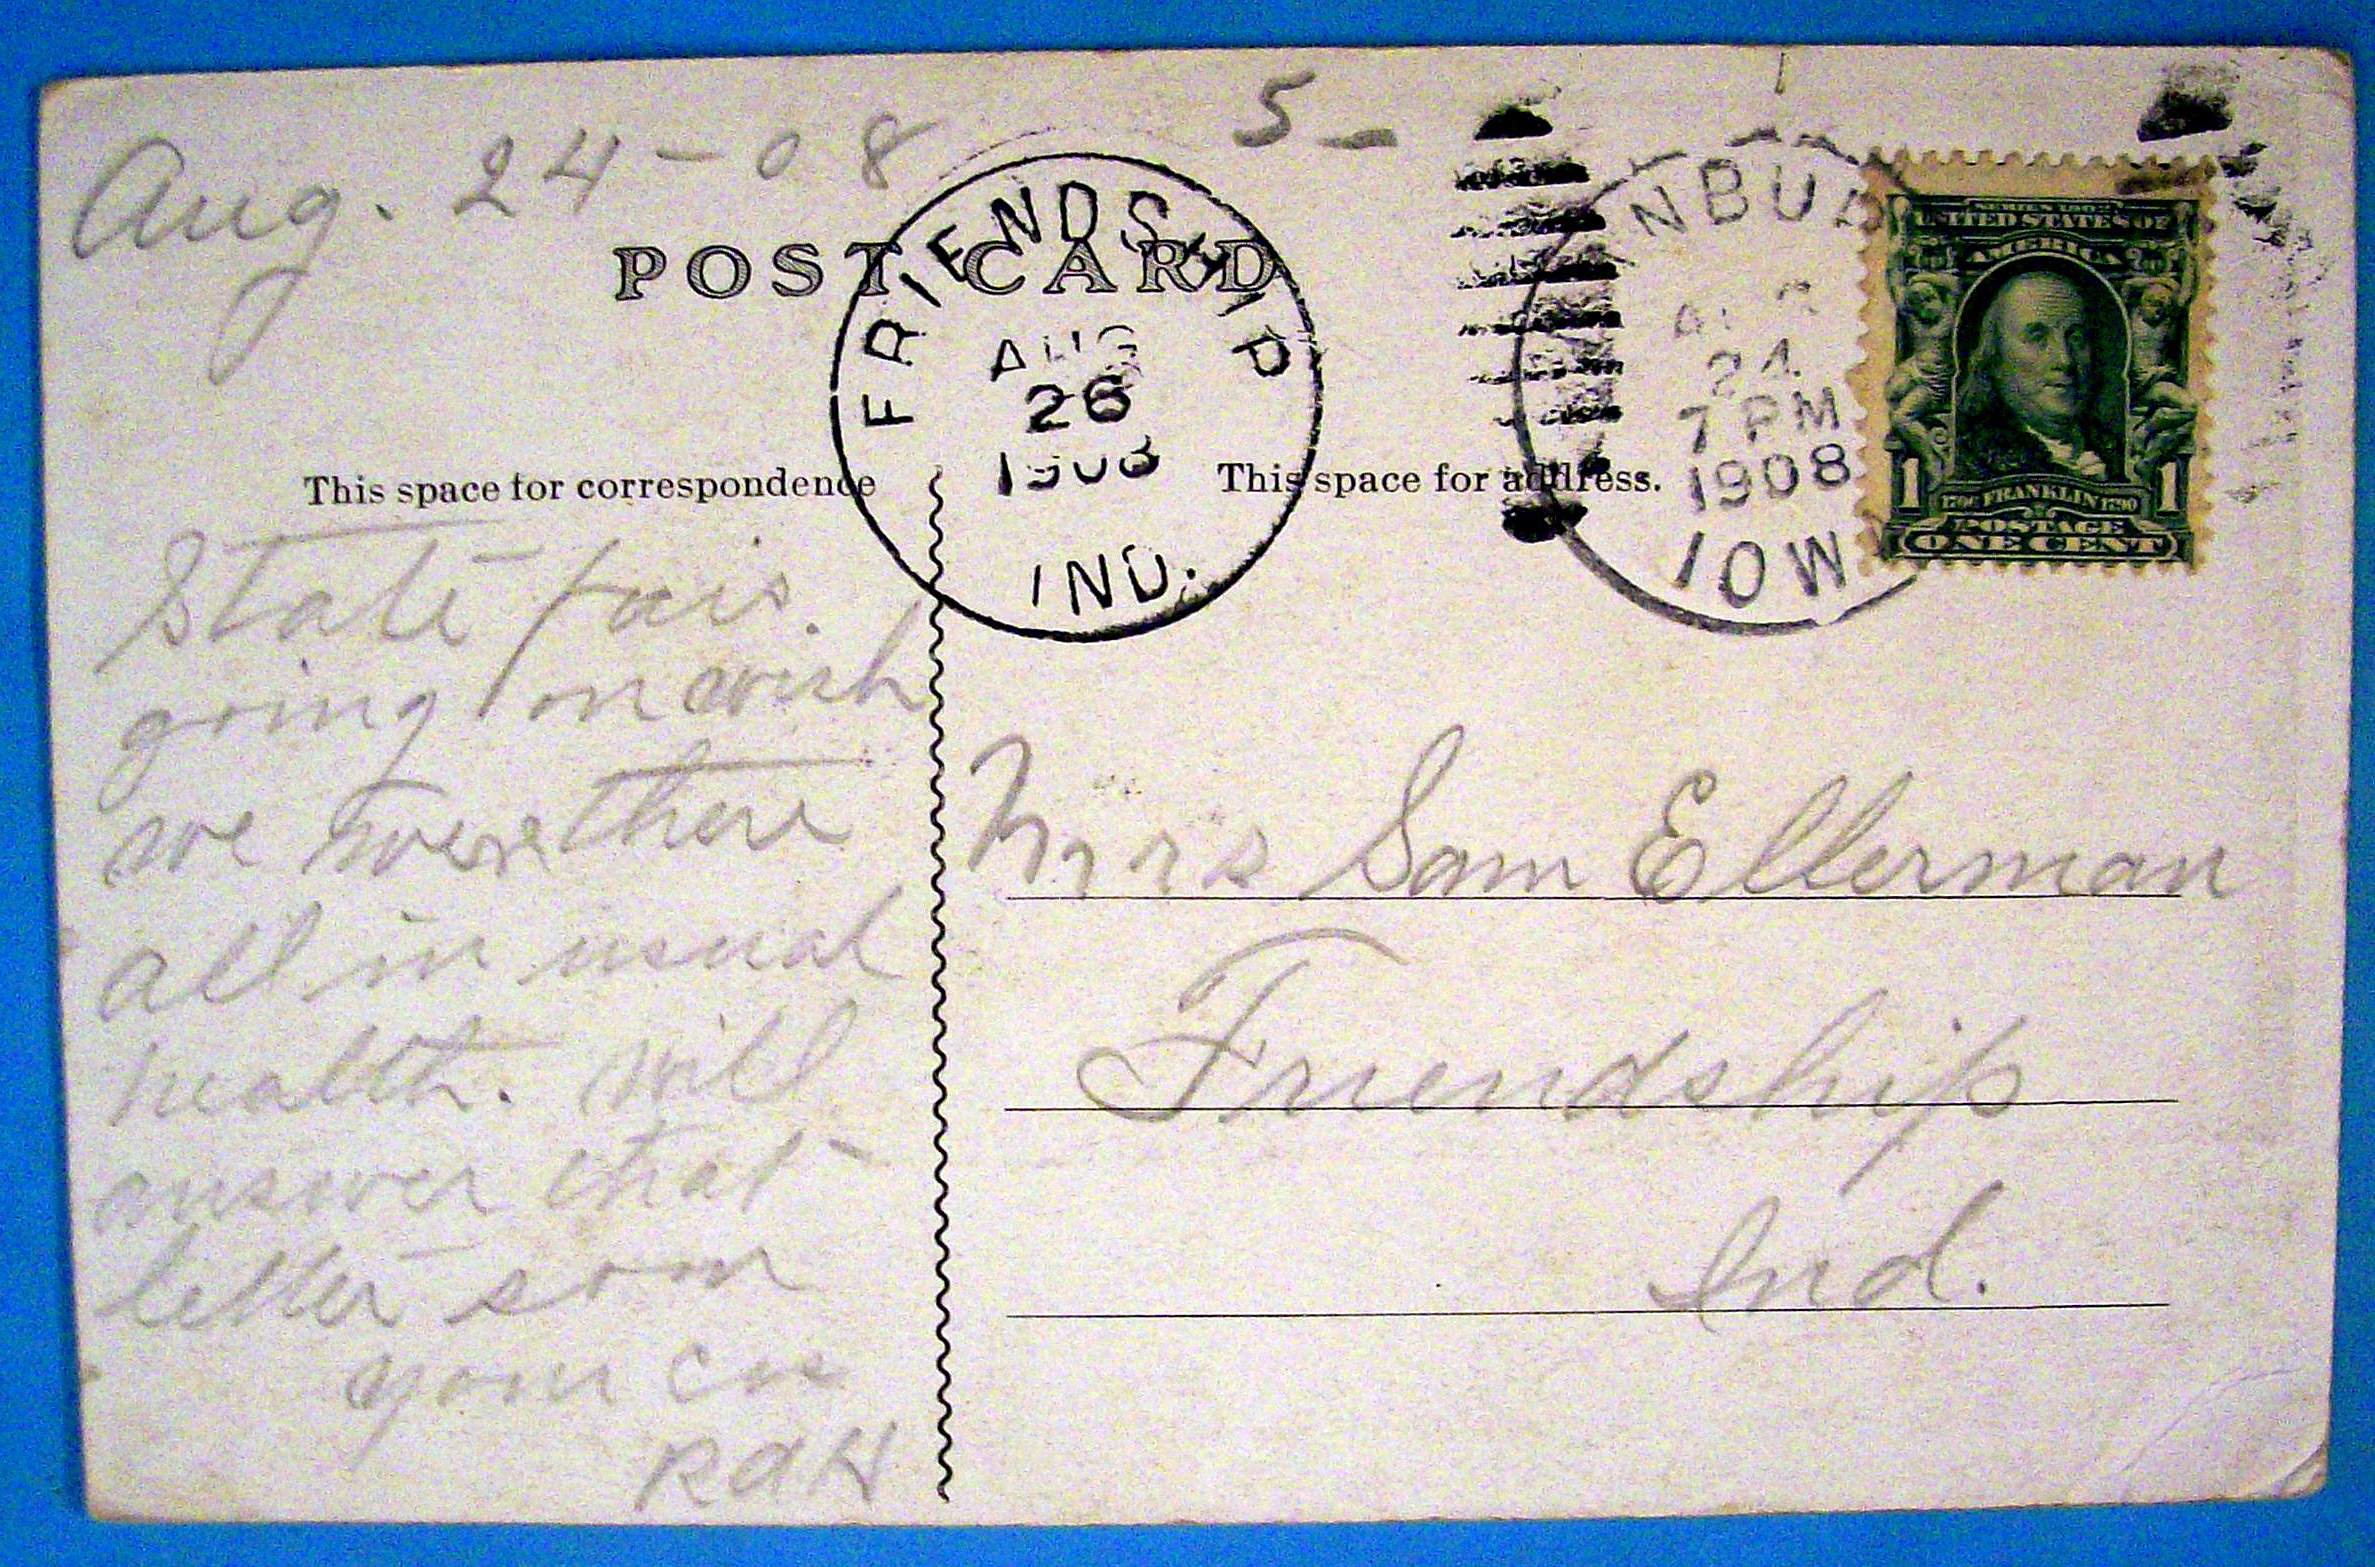 Aug. 24-08
5-
POST CARD
FRIENDSHIP
AUG
26
1908
IND.
NBU
24
7 PM
1908
IOW
UNITED STATES OF
AMERICA
1 FRANKLIN 1
POSTAGE
ONE CENT
This space for correspondence
This space for address.
State fair.
going on wish
we were there
all in usual
health. Will
answer that
letter soon
your
RdH
Mrs Sam Ellerman
Friendship
Ind.